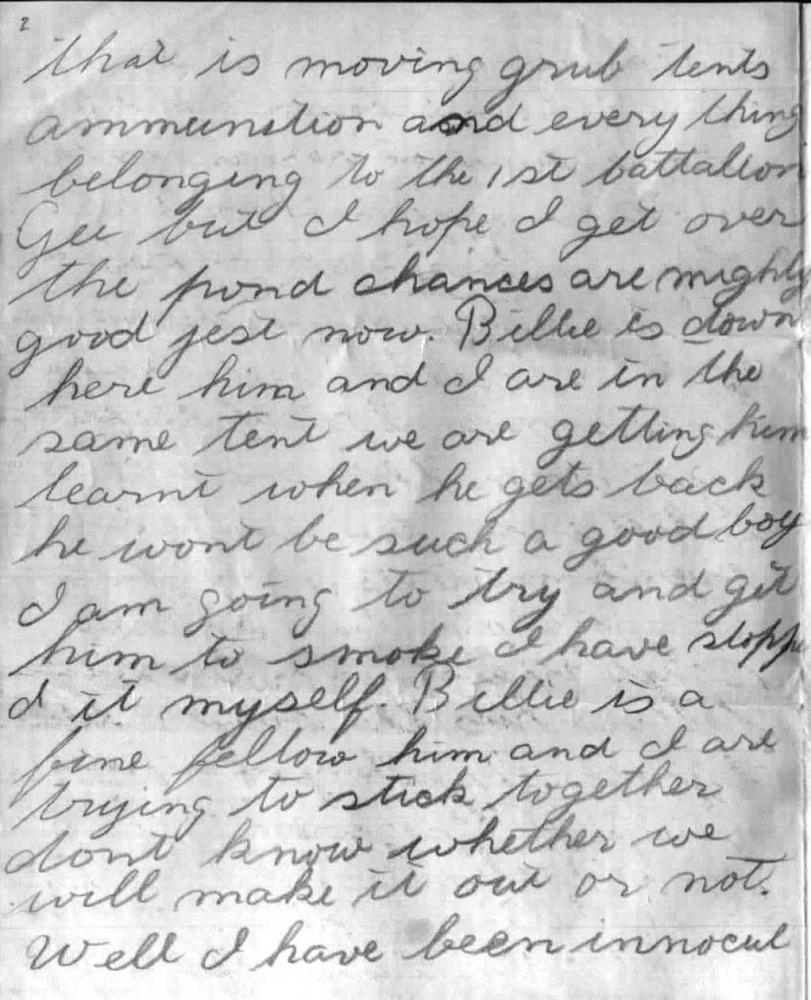 2
that is moving grub tents
ammunition and every thing
belonging to the 1st battalion
Gee but I hope I get over
the pond chances are mighty
good jest now. Billie is down
here him and I are in the
same tent we are getting him
learnt when he gets back
he wont be such a good boy
I am going to try and get
him to smoke I have stoppe
d it myself. Billie is a
fine fellow him and I are
trying to stick together
dont know whether we
will make it out or not.
Well I have been innocul